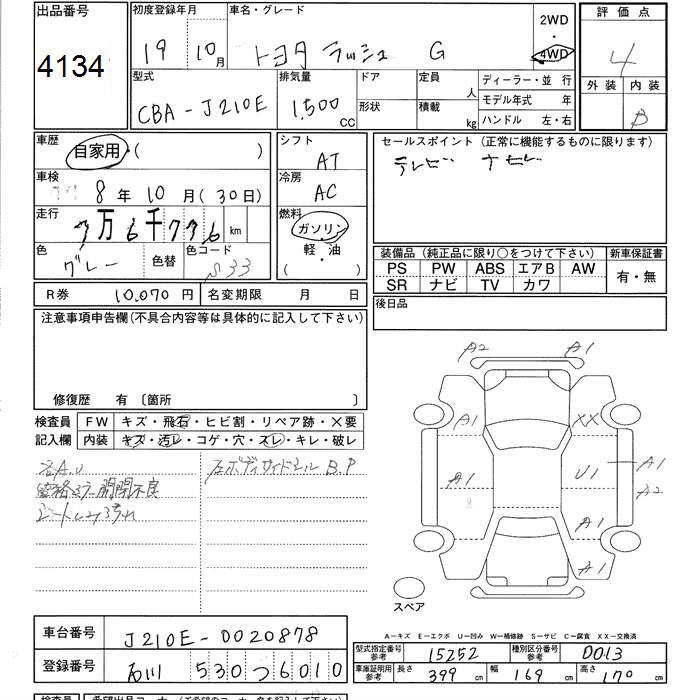 出品番号
4134
初度登録年月
19 10月
車名・グレード
トヨタ ラッシュ G
2WD
4WD
評価点
4
外装 内装
B
型式
CBA-J210E
排気量
1,500 CC
ドア
形状
定員 人
積載 kg
ディーラー・並 行
モデル年式 年
ハンドル 左・右
車歴
自家用・( )
車検
8年10月(30日)
走行
7万6千776 km
色
グレー
色替
色コード
S33
シフト
AT
冷房
AC
燃料
ガソリン
軽・油
( )
セールスポイント (正常に機能するものに限ります)
テレビ ナビ
装備品 (純正品に限り○をつけて下さい)
PS PW ABS エアB AW
SR ナビ TV カワ
新車保証書
有・無
R券
10,070円
名変期限 月 日
後日品
注意事項申告欄(不具合内容等は具体的に記入して下さい)
修復歴 有〔箇所 〕
検査員
記入欄
FW キズ・飛石・ヒビ割・リペア跡・×要
内装 キズ・汚レ・コゲ・穴・スレ・キレ・破レ
各A.U
左ボディサイドシル B.P
格ミラー開閉不良
A2 A1
A1 XX
A1 U1 A1
A2
A1
A1
スペア
A―キズ E―エクボ U―凹み W―補修跡 S―サビ C―腐食 XX―交換済
車台番号
J210E-0020878
登録番号
石川 530 つ 6010
型式指定番号
参考
15252
種別区分番号
参考
0013
車庫証明用
参考
長さ 399 cm 幅 169 cm 高さ 170 cm
検査員
希望出品コーナー